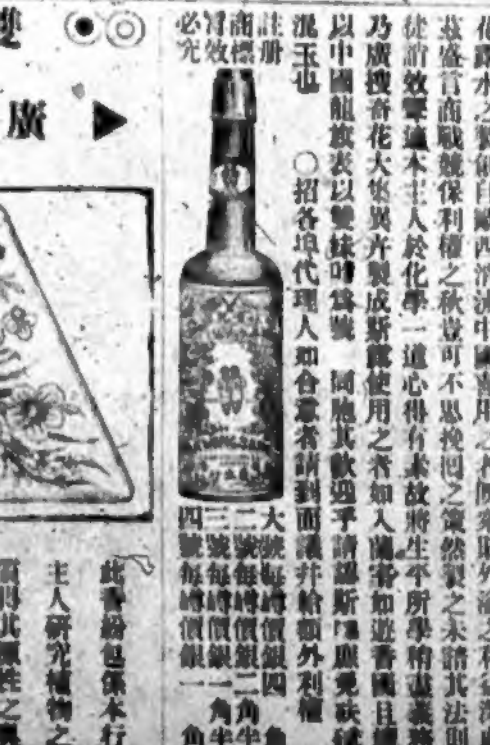 花露水之製創自歐西消流中國
茲盛言商戰競保利權之秋豈可不思挽囘之策然製之未諳其法則
徒誚效顰 本主人於化學一道心得有素故將生平所學精
乃廣搜奇花大集異卉製成斯露使用之者如入蘭室如遊香國且
以中國龍旗表以雙妹嘜爲號 同胞其歡迎乎請認斯嘜庶免砆碔
混玉也 〇招各埠代理人如合意者請到面議幷給額外利權
註册
商標
冒效
必究
大號每樽價銀四角
二號每樽價銀二角半
三號每樽價銀一角半
四號每樽價銀一角
雙
廣
此香粉包係本行
主人研究植物之
質性之